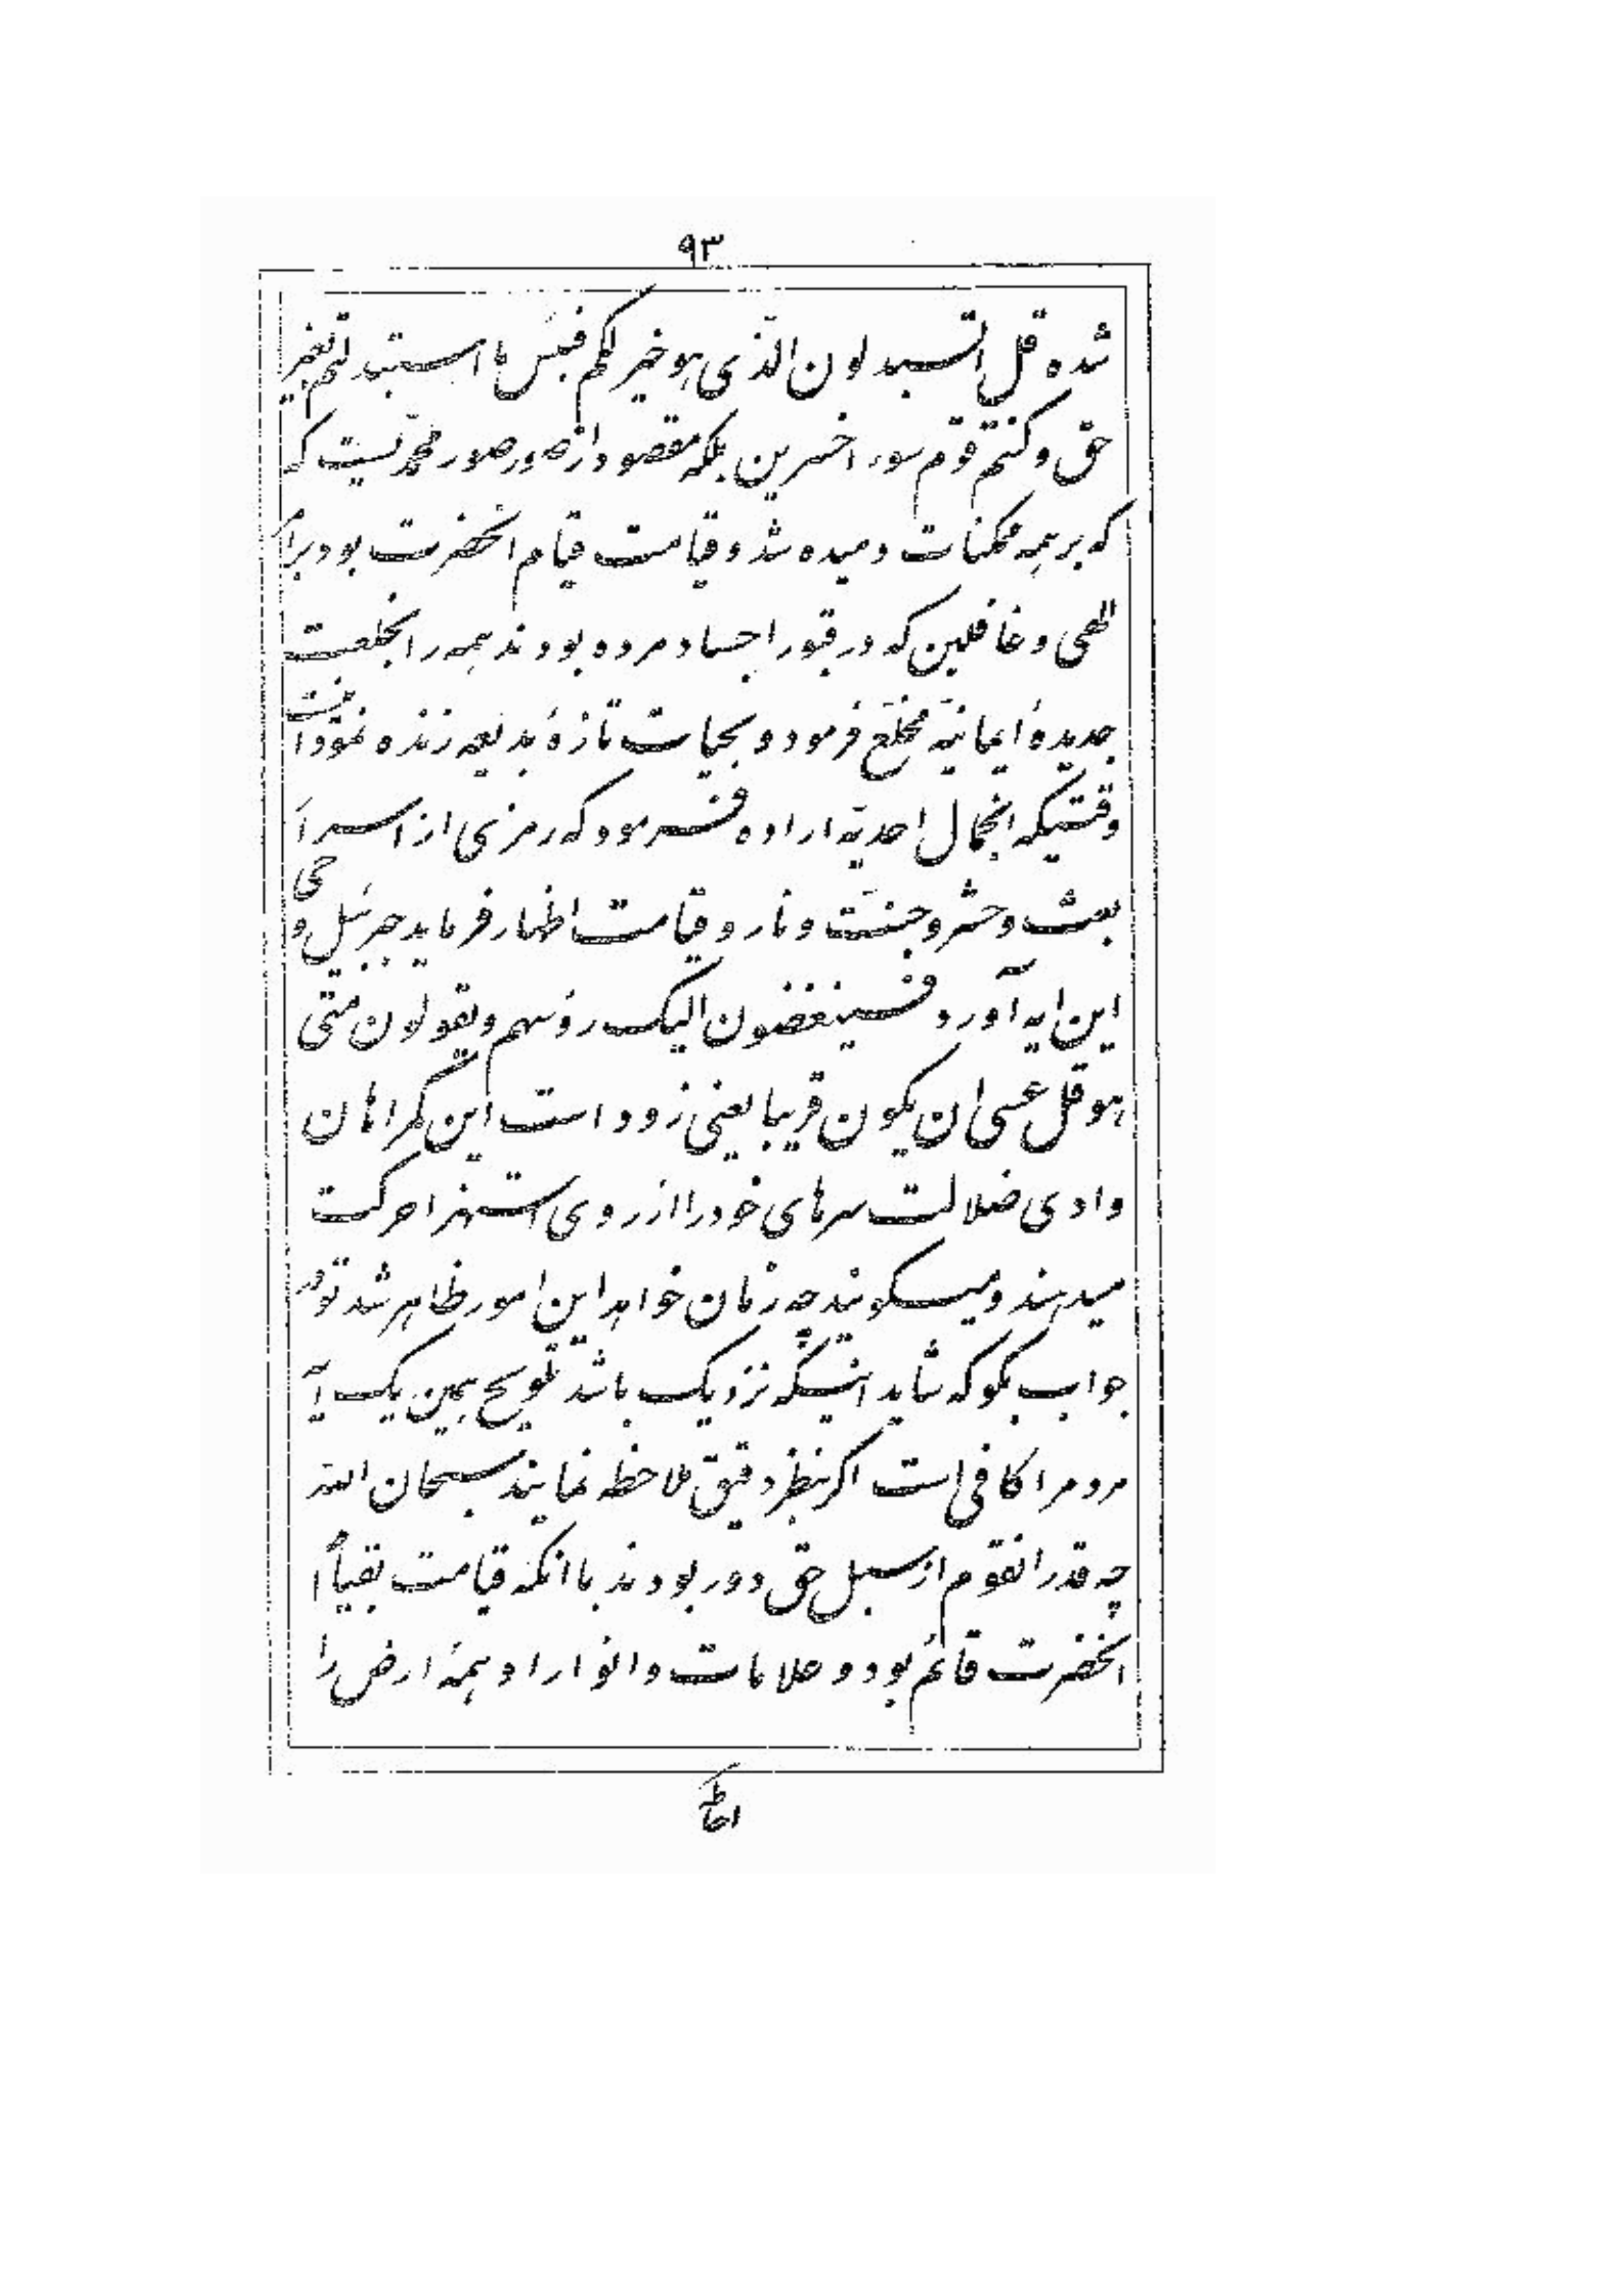 ۹۳
شده قل اتستبدلون الّذی هو خیر لکم فبئس ما استبدلتم بغیر
حق و کنتم قوم سوء اخسرین بلکه مقصود از صور صور محمّدیست که
که بر همه ممکنات دمیده شد و قیامت قیام انحضرت بود بر امر
الهی و غافلین که در قبور اجساد مرده بودند همه را بخلعت
جدیدهٔ ایمانیّه مخلّع فرمود و بحیات تازهٔ بدیعه زنده نمود اینست
وقتیکه انجمال احدیّه اراده فرمود که رمزی از اسرار
بعث و حشر و جنّت و نار و قیامت اظهار فرماید جبرئیل وحی
این ایه آورد فسینغضون الیک رؤسهم و یقولون متی
هو قل عسی ان یکون قریبا یعنی زود است این گمراهان
وادی ضلالت سرهای خود را از روی استهزا حرکت
میدهند و میگویند چه زمان خواهد این امور ظاهر شد تو در
جواب بگو که شاید اینکه نزدیک باشد تلویح همین یک آیه
مردم را کافی است اگر بنظر دقیق ملاحظه نمایند سبحان اللّه
چه قدر انقوم از سبل حق دور بودند با انکه قیامت بقیام
انحضرت قائم بود و علامات و انوار او همهٔ ارض را
احاطه